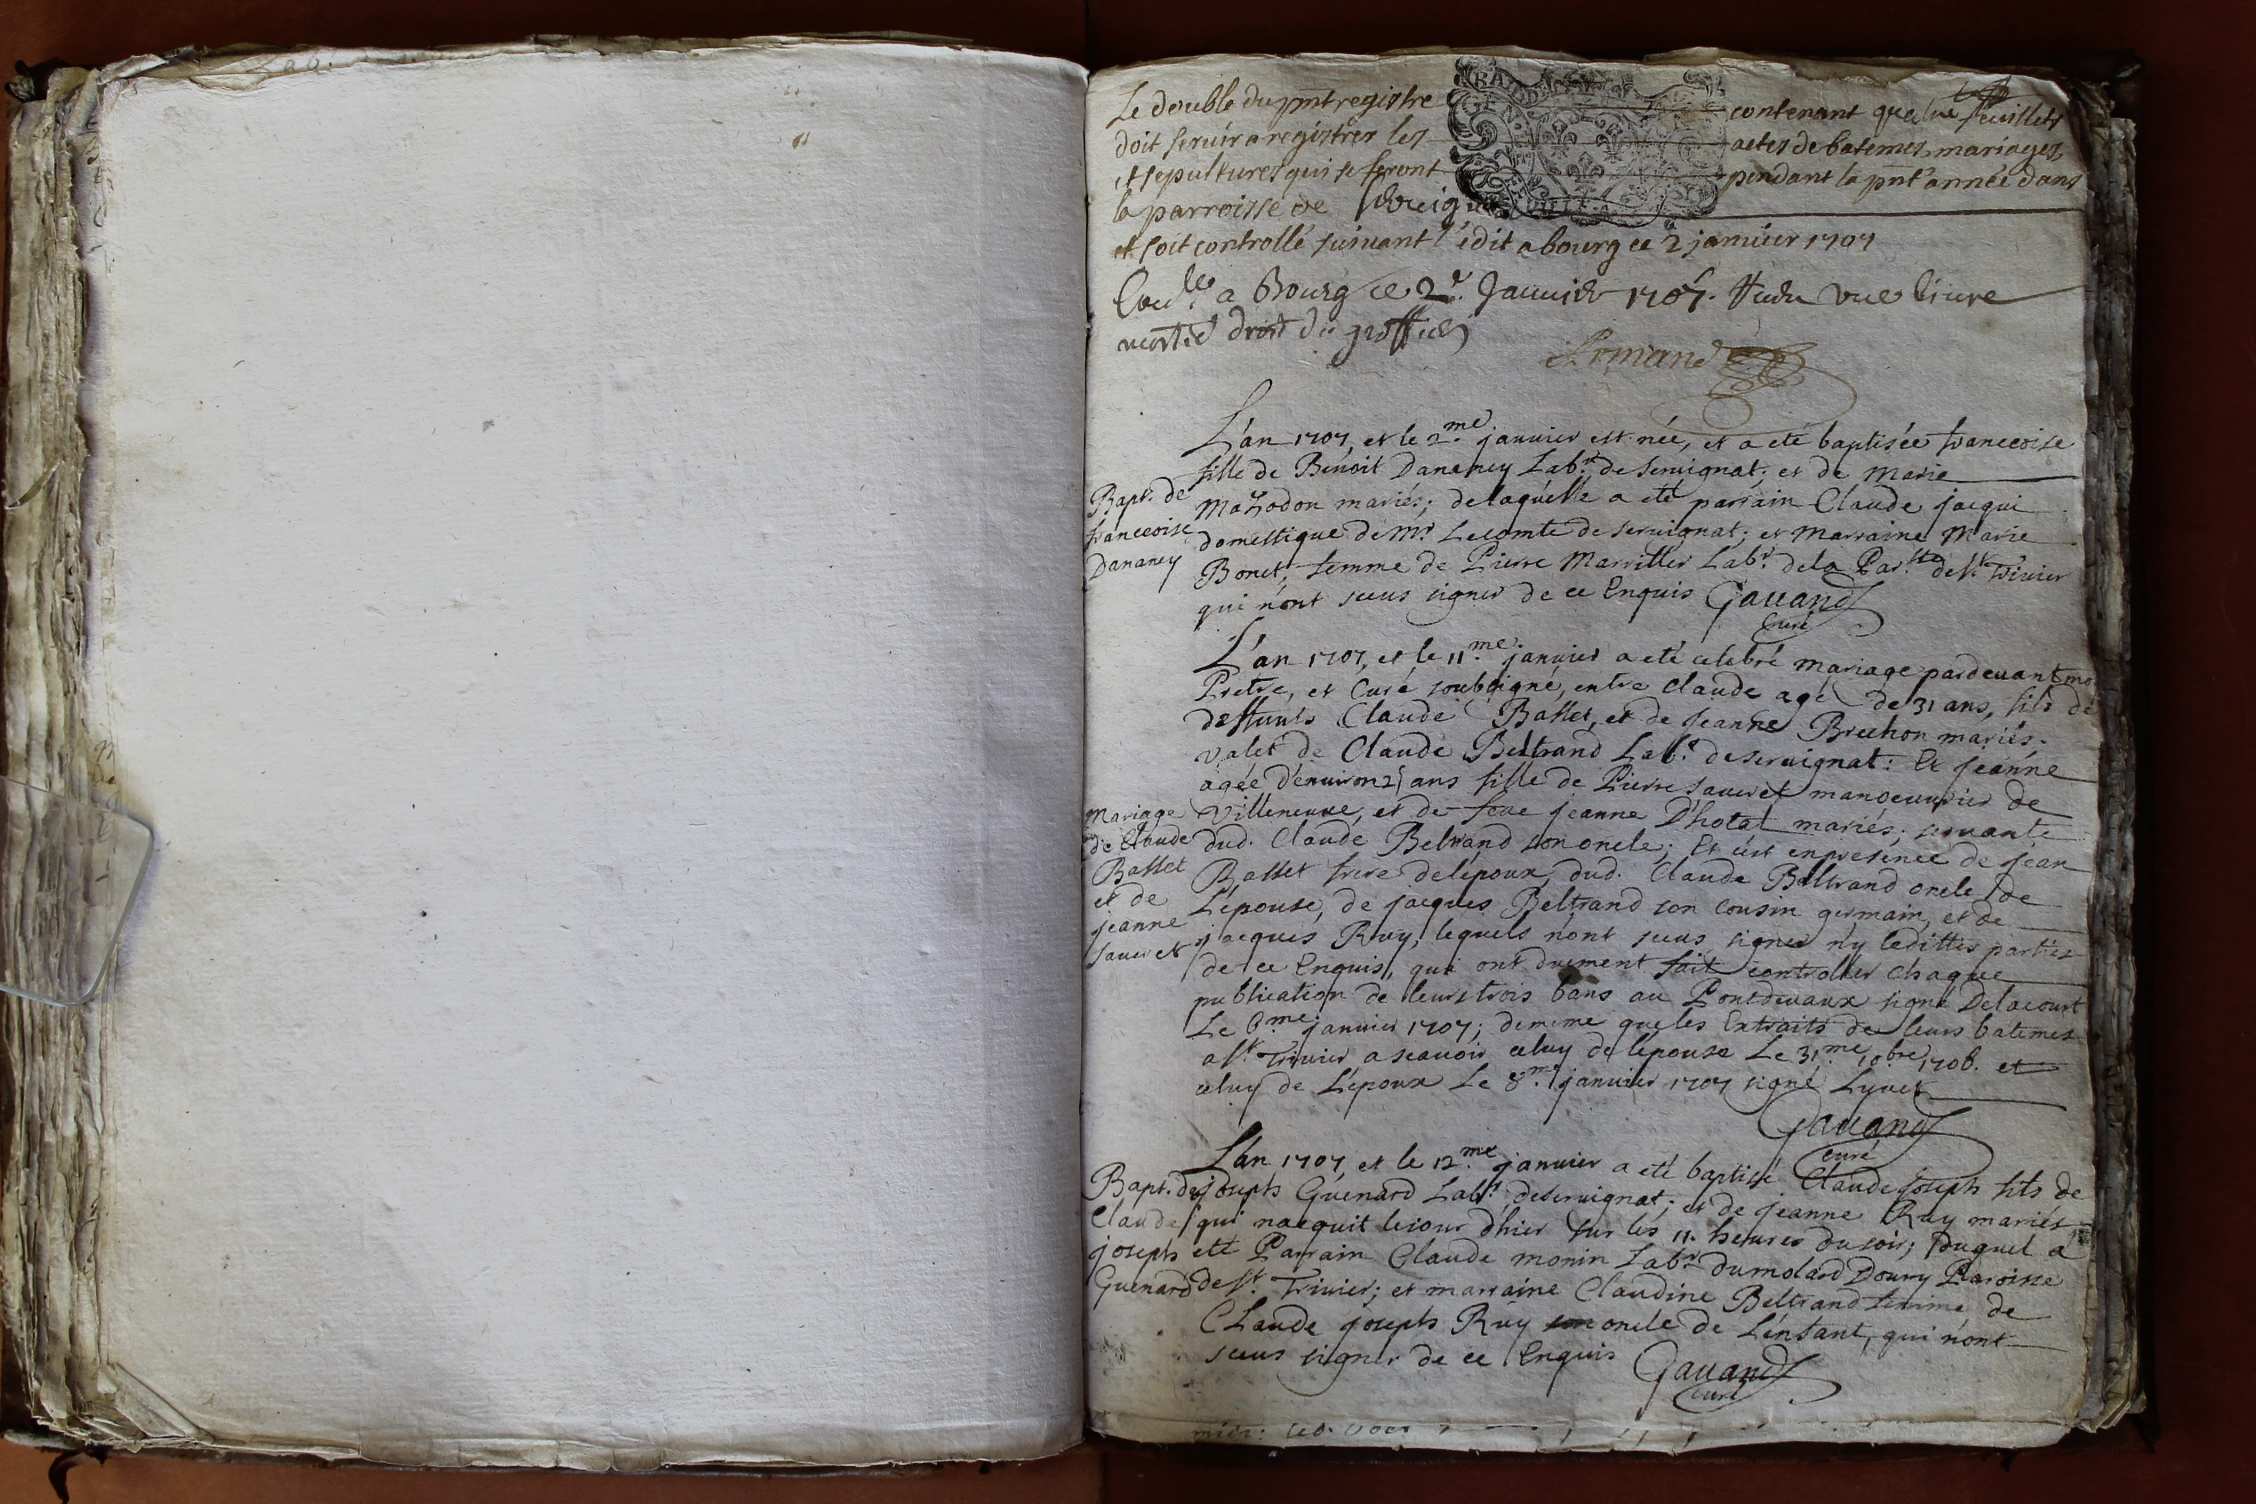 Le double du pnt registre contenant quatre feuillets
doit servir a registrer les actes de batemes, mariages
et sepultures qui se feront pendant la pnt' année dans
la parroisse de Servigna
et soit controllé suivant l'édit a bourg ce 2 janvier 1707
a Bourg ce 2e. Janvier 1707. livre
droit du greffier
L'an 1707, et le 2.me janvier est née, et a eté baptisée franceoise
fille de Benoit Dananey Lab.r de servignat; et de Marie
Mazodon mariés; delaquelle a eté parrain Claude jacqui
domestique de Mr Lecomte de servignat; et Marraine Marie
Bonet, femme de Pierre Marvillet Lab.r dela Par.sse de st Trivier
qui n'ont sceus signer de ce Enquis Gavand
Curé
Bapt. de
franceoise
Dananey
L'an 1707, et le 11.me janvier a eté celebré Mariage pardevant mo
Pretre, et Curé soubsigné, entre Claude agé de 31 ans, fils de
deffunts Claude Basset, et de Jeanne Bruchon mariés;
valet de Claude Beltrand Lab.r de servignat: Et Jeanne
agée d'environ 25 ans fille de Pierre Sauvret manoeuvrier de
Villeneuve, et de feue Jeanne D'hotal mariés; servante
dud. Claude Beltrand son oncle; Et c'est enpresence de Jean
Basset frere delépoux, dud. Claude Beltrand oncle de
L'épouse, de jacques Beltrand son cousin germain, et de
jacques Ruy, lequels n'ont sceus signer n'y ledittes parties
de ce Enquis, qui ont duement fait controller chaque
publication de leurs trois bans au Pontdevaux signé Delacourt
Le 6.me janvier 1707; dememe que les Extraits de leurs batemes
a st. Trivier a scavoir celuy de lepouse Le 31.me 10bre 1706. et
celuy de L'époux Le 8.me janvier 1707 signé Lyvet
Gavand
Curé
Mariage
de Claude
Basset
et de
jeanne
Sauvret
L'an 1707, et le 12.me janvier a eté baptisé Claude Joseph fils de
joseph Guenard Lab.r deservignat; et de Jeanne Ruy mariés
qui nacquit le jour d'hier sur les 11. heures du soir; Duquel a
eté Parrain Claude monin Lab.r dumolard Doury Paroisse
de st. Trivier; et marraine Claudine Beltrand femme de
Claude joseph Ruy oncle de L'enfant, qui n'ont
sceus signer de ce Enquis Gavand
Curé
Bapt. de
Claude
joseph
Guenard